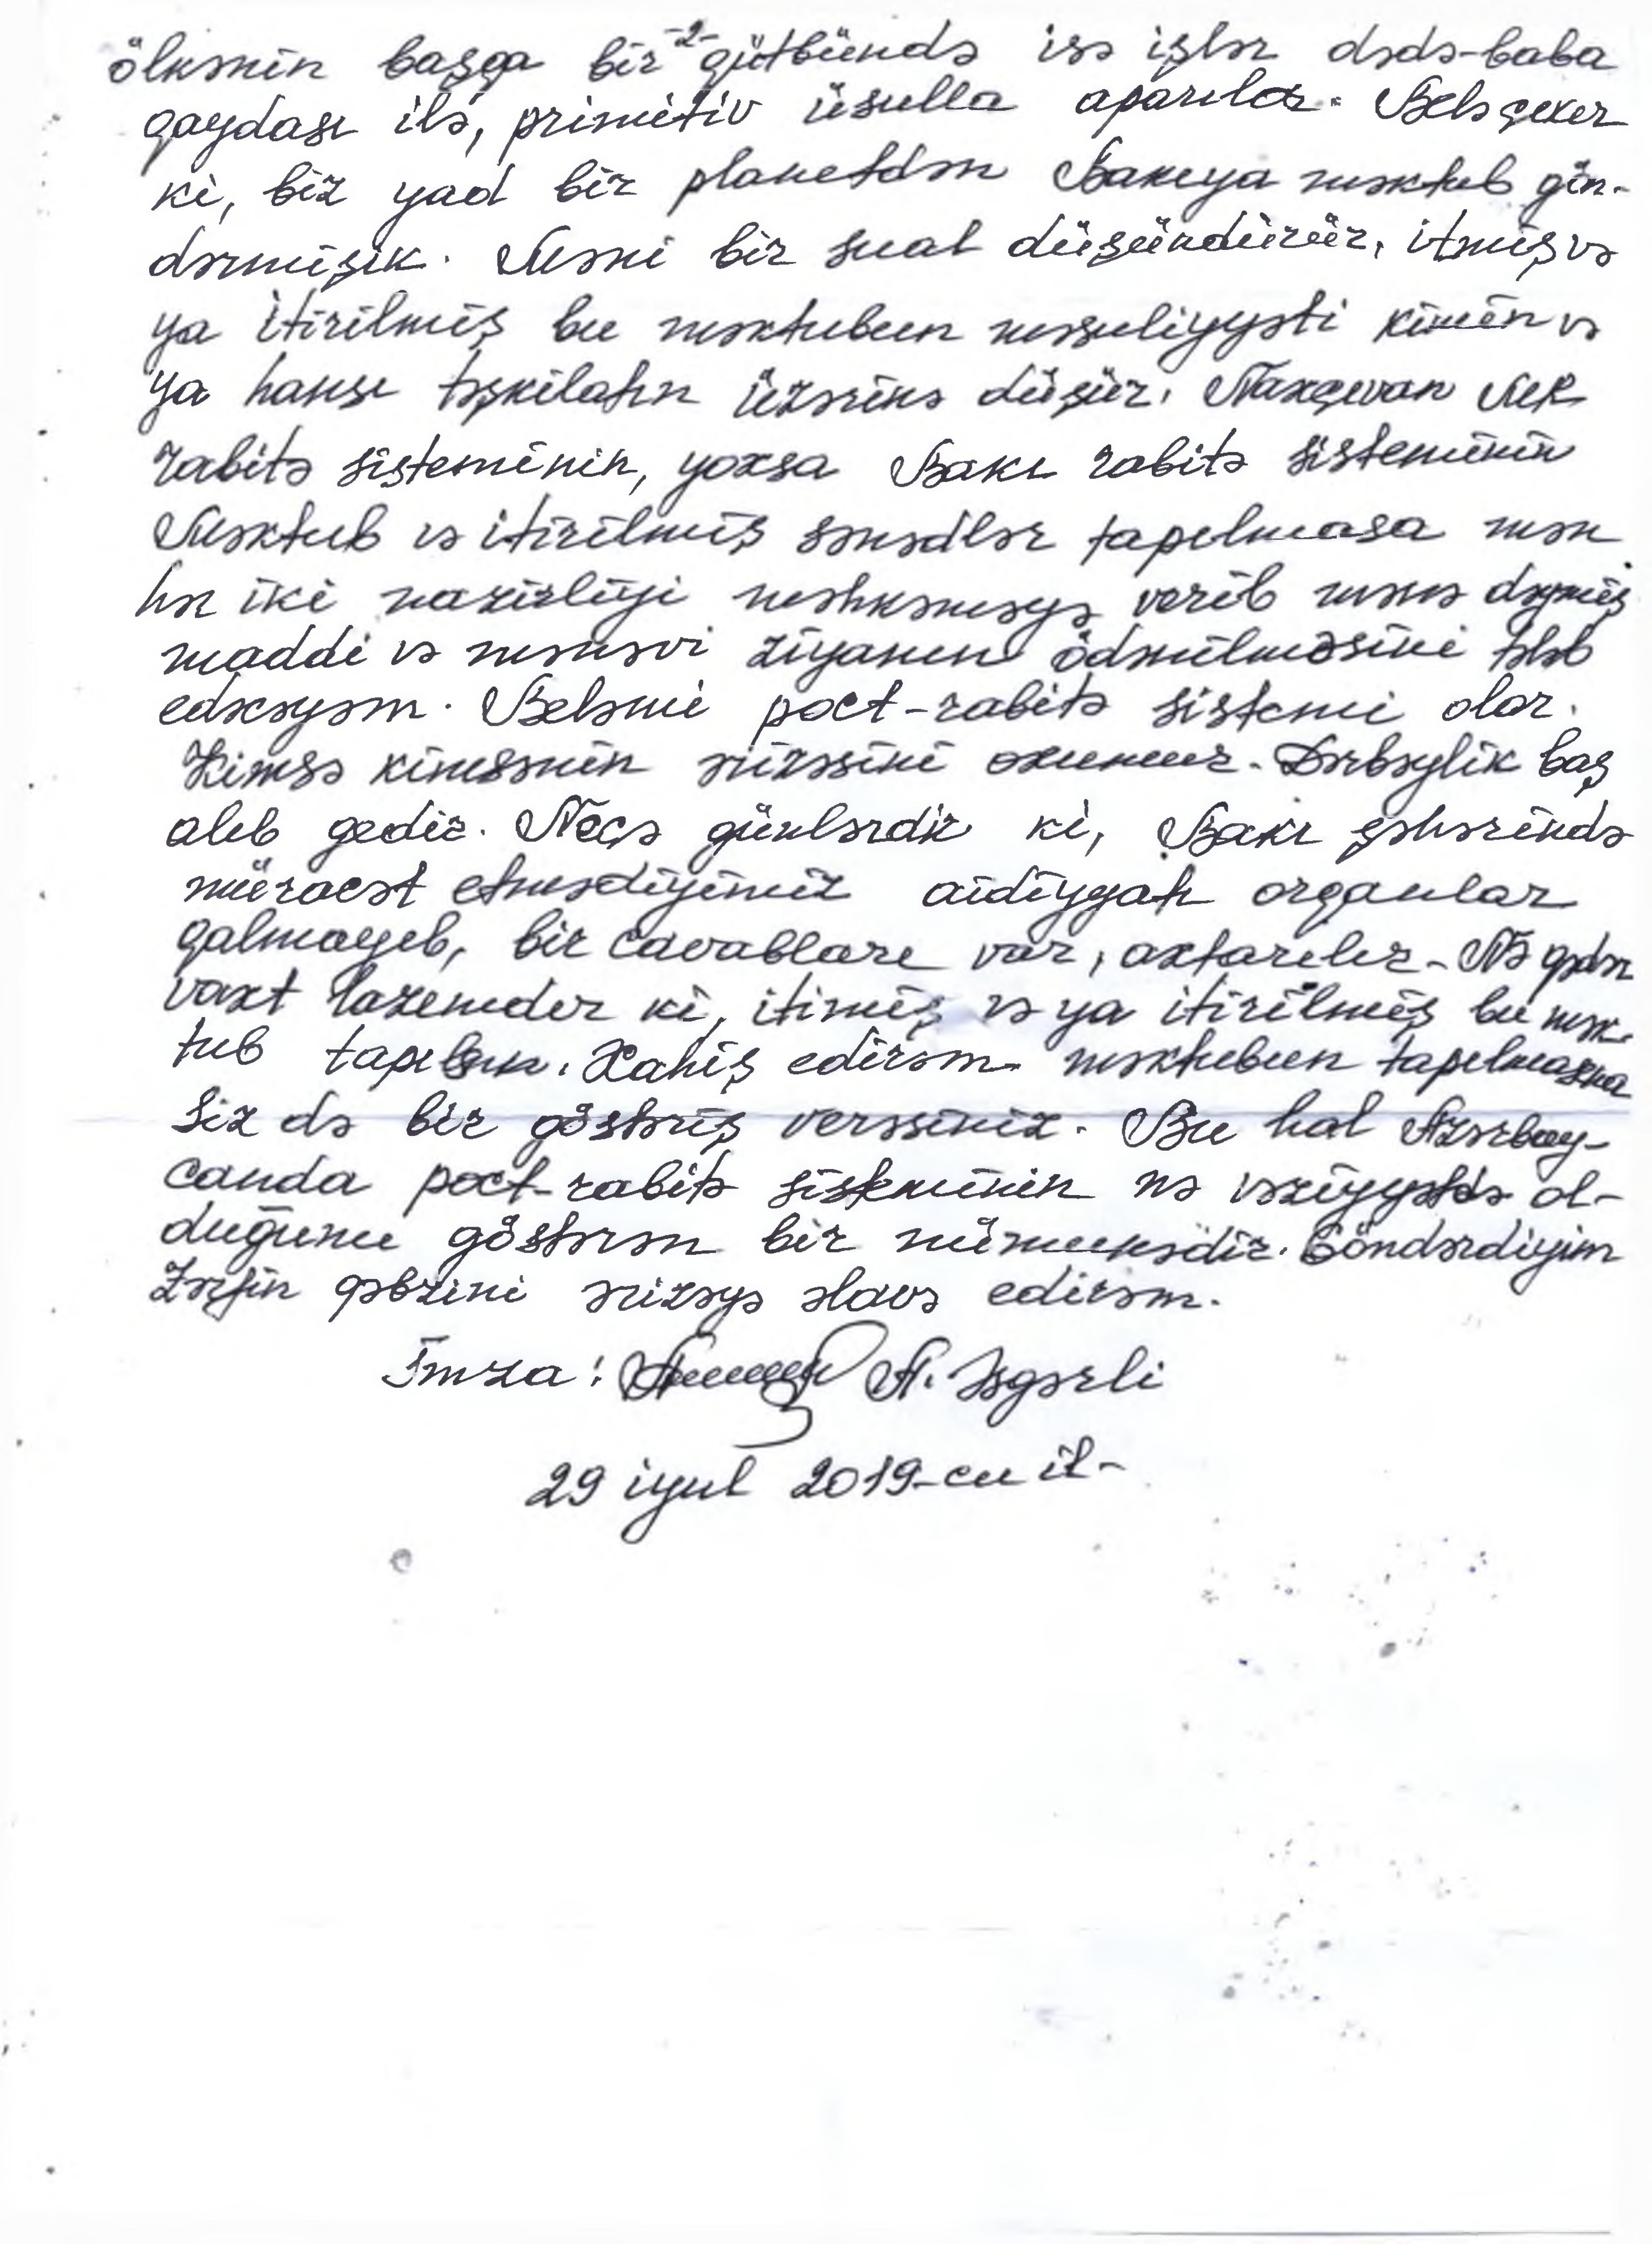 -2-
ölkənin başqa bir qütbündə isə işlər dədə-baba
qaydası ilə, primitiv üsulla aparılır. Belə çıxır
ki, biz yad bir planetdən Bakıya məktub gön-
dərmişik. Məni bir sual düşündürür, itmiş və
ya itirilmiş bu məktubun məsuliyyəti kimin və
ya hansı təşkilatın üzərinə düşür. Naxçıvan MR
rabitə sisteminin, yoxsa Bakı rabitə sisteminin
Məktub və itirilmiş sənədlər tapılmasa mən
hər iki nazirliyi məhkəməyə verib mənə dəymiş
maddi və mənəvi ziyanın ödənilməsini tələb
edəcəyəm. Beləmi poct-rabitə sistemi olar.
Kimsə kimsənin ərizəsini oxumur. Dərbəylik baş
alıb gedir. Neçə günlərdir ki, Bakı şəhərində
müraciət etmədiyimiz aidiyyatı orqanlar
qalmayıb, bir cavabları var, axtarılır. Nə qədər
vaxt lazımdır ki, itimiş və ya itirilmiş bu mək-
tub tapılsın. Xahiş edirəm məktubun tapılmasına
Siz də bir göstəriş verəsiniz. Bu hal Azərbay-
canda poct-rabitə sisteminin nə vəziyyətdə ol-
duğunu göstərən bir nümunədir. Göndərdiyim
Zərfin qəbzini ərizəyə əlavə edirəm.
İmza: A. Əsgərli
29 iyul 2019-cu il-